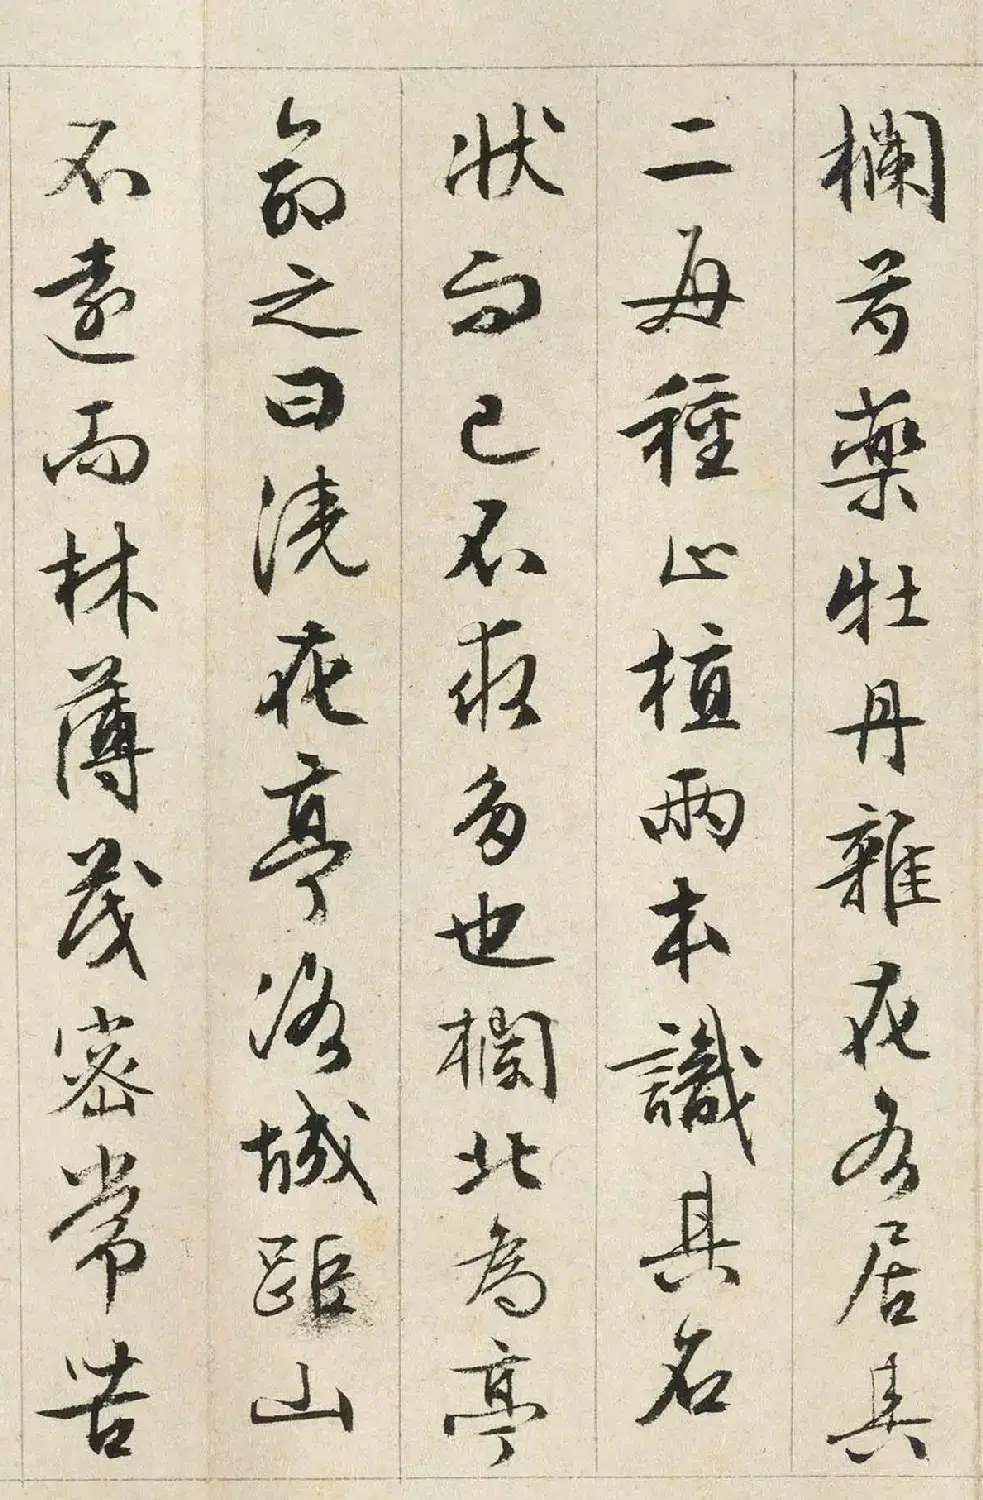 欄芍藥牡丹雜花各居其
二每種止植兩本識其名
狀而已不求多也欄北為亭
命之曰澆花亭洛城距山
不遠而林薄茂密常苦